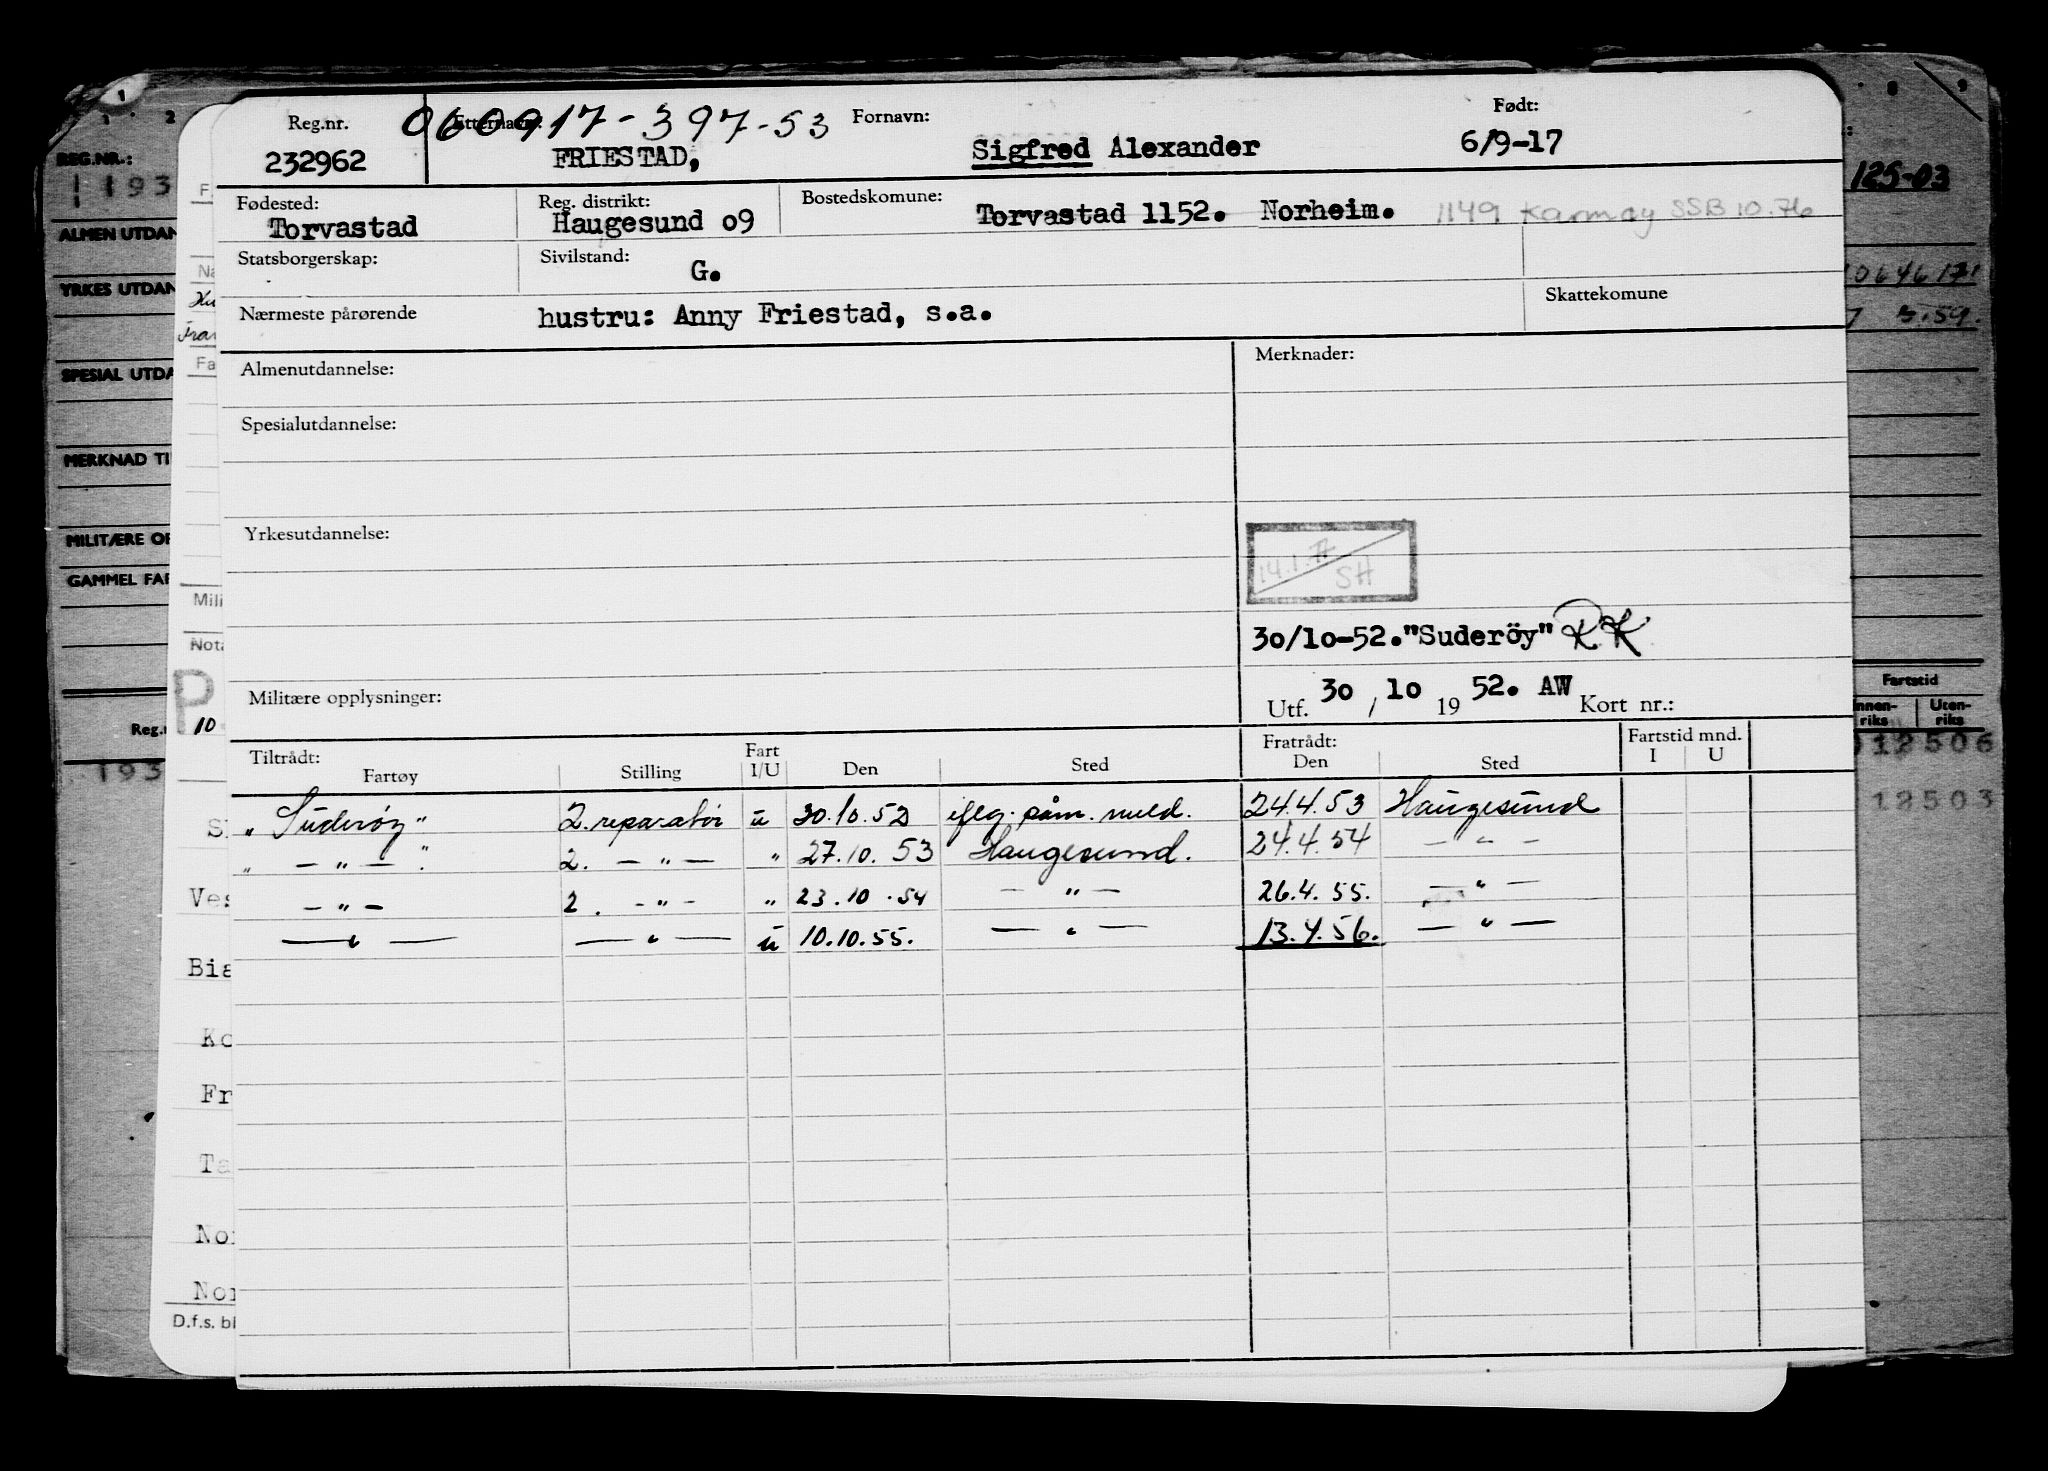 Reg.nr. Etternavn: 060917-397-53 Fornavn: Født:
232962 FRIESTAD, Sigfred Alexander 6/9-17
Fødested: Reg. distrikt: Bostedskomune:
Torvastad Haugesund o9 Torvastad 1152. Norheim. 1149 Karmøy SSB 10.76
Statsborgerskap: Sivilstand: G.
Nærmeste pårørende hustru: Anny Friestad, s.a. Skattekomune
Almenutdannelse: Merknader:
Spesialutdannelse:
Yrkesutdannelse:
SH
30/10-52. "Suderöy" RK
Militære opplysninger: Utf. 30 / 10 19 52. AW Kort nr.:
Tiltrådt: Fart Fratrådt: Fartstid mnd.
Fartøy Stilling I/U Den Sted Den Sted I U
"Suderøy" 2. reparatör u 30.10.52 iflg. påm. meld. 24.4.53 Haugesund
" — " — " 2. — " — " 27.10.53 Haugesund. 24.4.54 — " —
— " — 2. — " — " 23.10.54 — " — 26.4.55. — " —
— " — — " — u 10.10.55. — " — 13.4.56. — " —
REG.NR.:
ALMEN UTDAN
YRKES UTDAN
SPESIAL UTDA
MERKNAD TI
MILITÆRE OP
GAMMEL FAR
Reg.n
193
Mili
Nota
P
10
Ves
Bia
Ko
Fr
Ta
Nor
Nor
D.f.s. bl
125-03
3.59.
Fartstid
Innen-riks Uten-riks
12506
12503